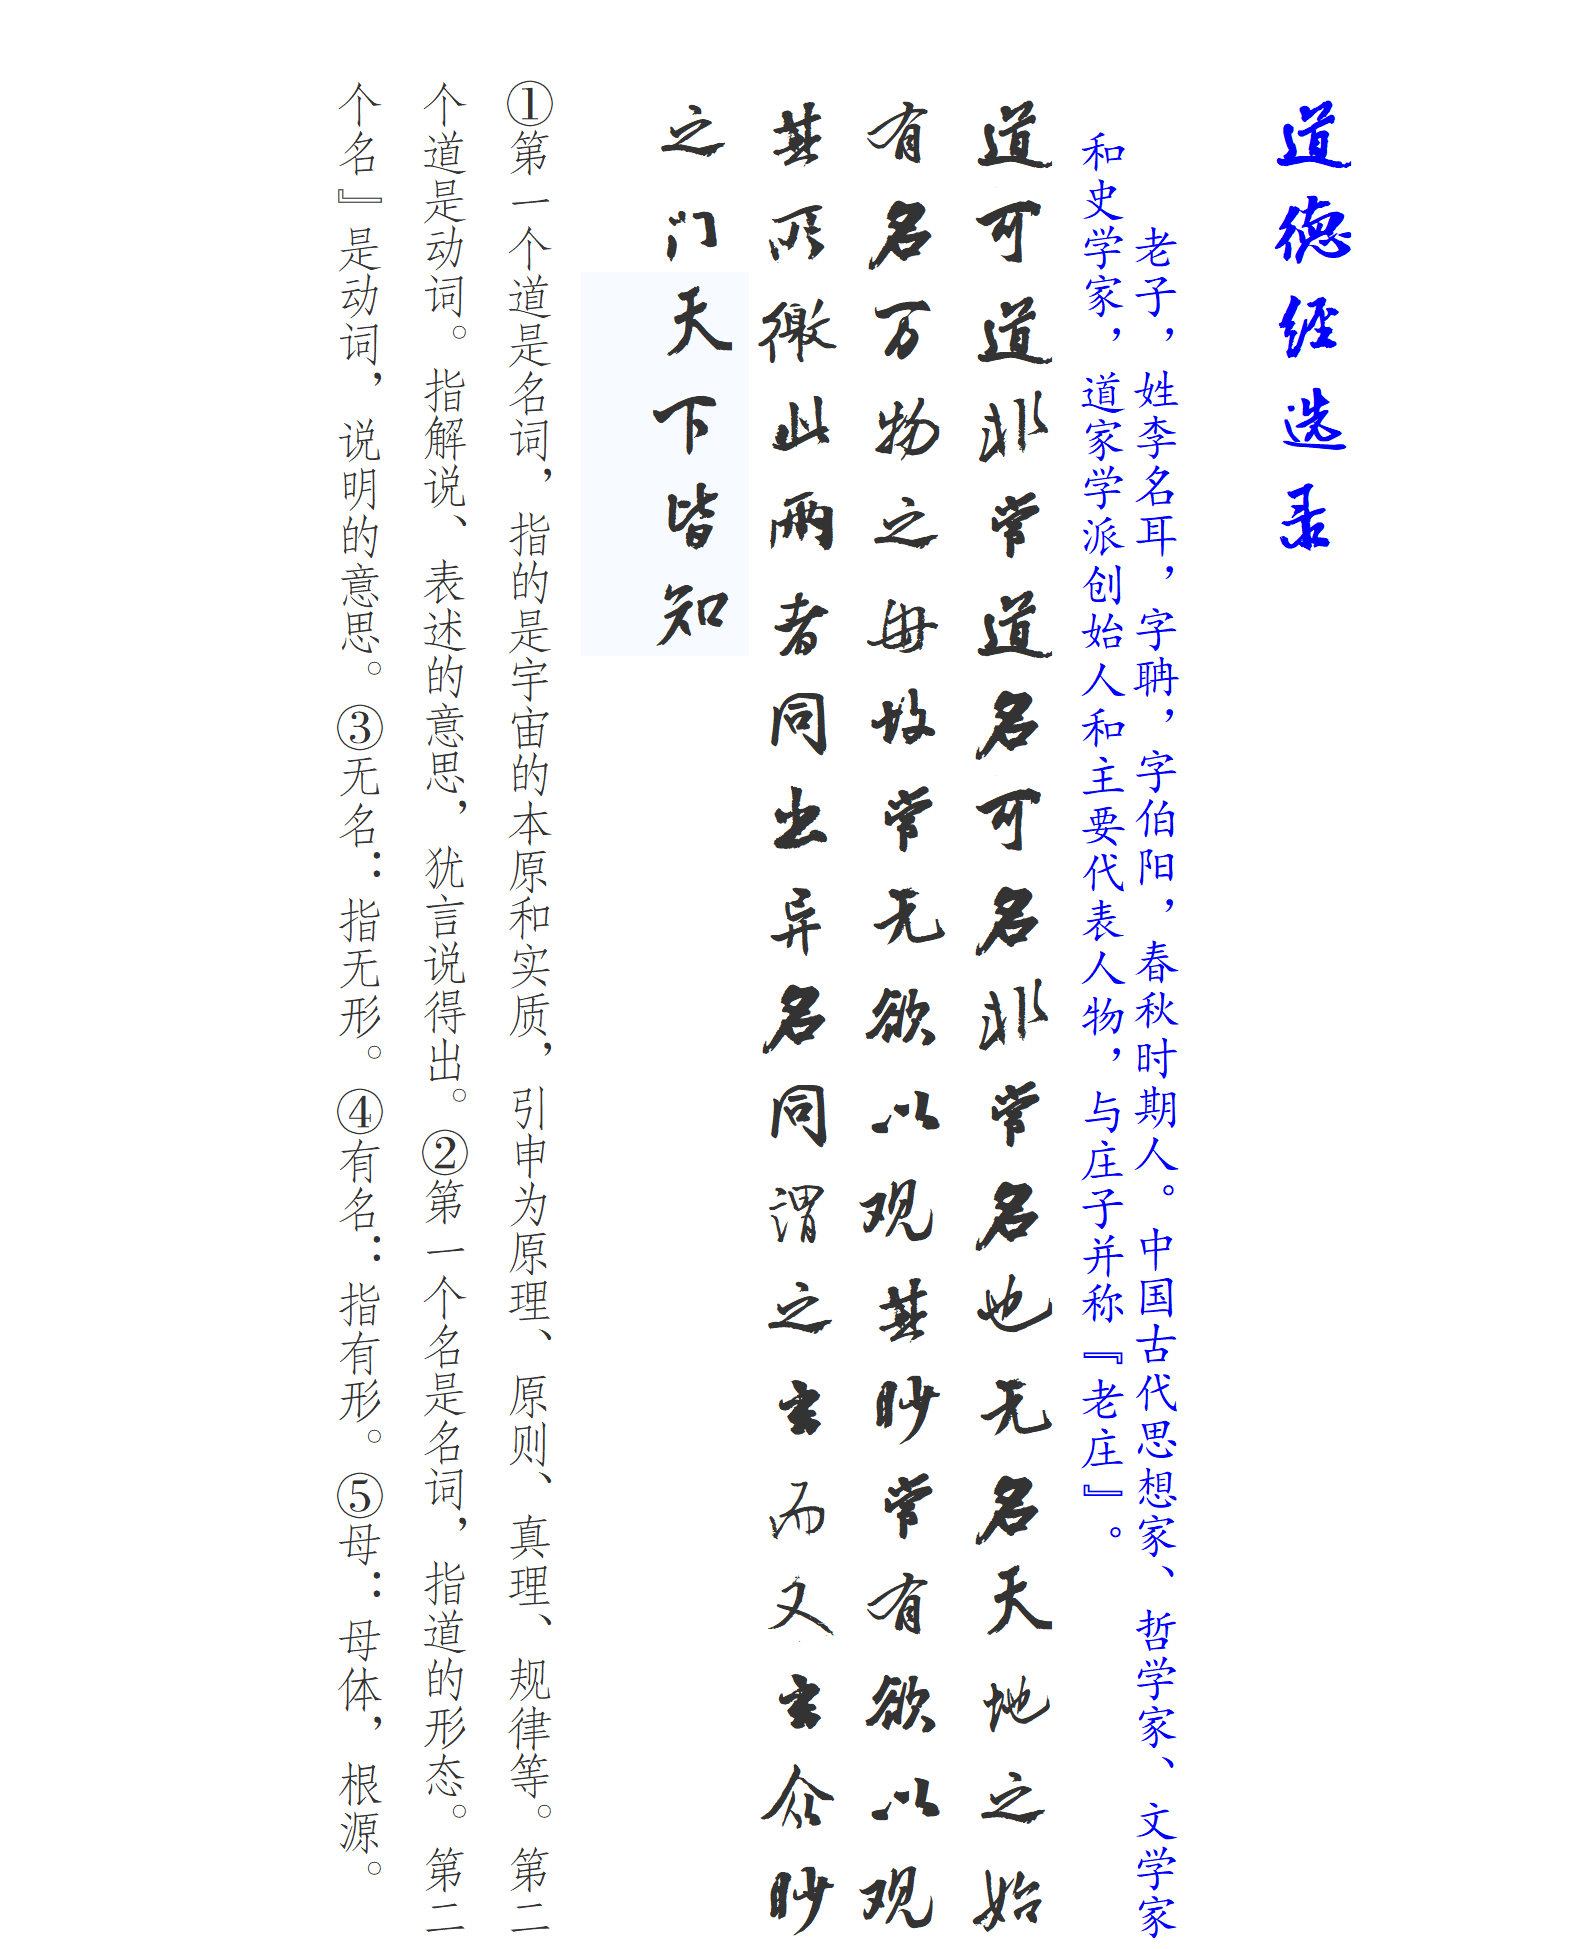 道德经选录
老子，姓李名耳，字聃，字伯阳，春秋时期人。中国古代思想家、哲学家、文学家
和史学家，道家学派创始人和主要代表人物，与庄子并称『老庄』。
道可道非常道名可名非常名也无名天地之始
有名万物之母故常无欲以观其眇常有欲以观
其所徼此两者同出异名同谓之玄而又玄众眇
之门天下皆知
①第一个道是名词，指的是宇宙的本原和实质，引申为原理、原则、真理、规律等。第二
个道是动词。指解说、表述的意思，犹言说得出。②第一个名是名词，指道的形态。第二
个名』是动词，说明的意思。③无名：指无形。④有名：指有形。⑤母：母体，根源。